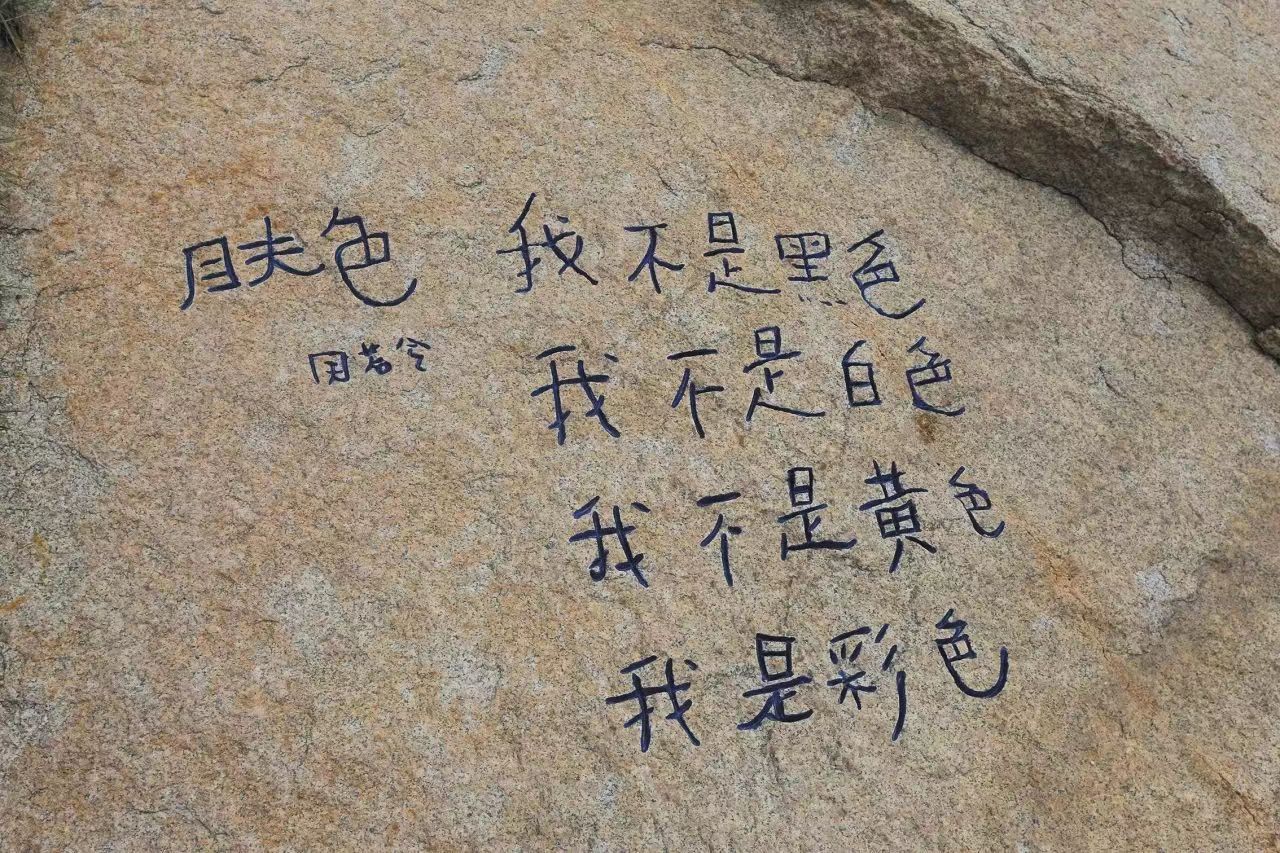 肤色
周若兮
我不是黑色
我不是白色
我不是黄色
我是彩色